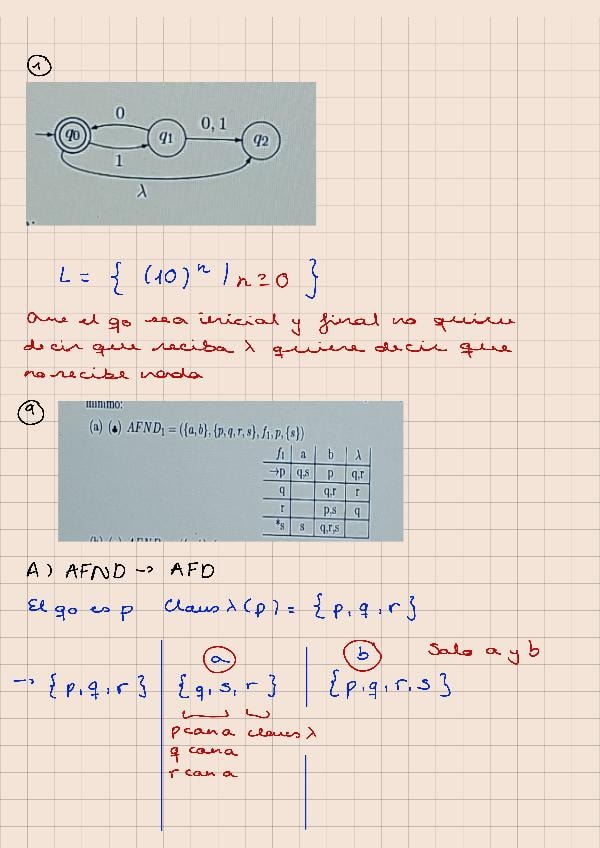 1
0
0, 1
q0 q1 q2
1
λ
L = { (10)^n / n ≥ 0 }
Que el q0 sea inicial y final no quiere
decir que reciba λ quiere decir que
no recibe nada
9
mínimo:
(a) (♠) AFND₁ = ({a,b},{p,q,r,s},f₁,p,{s})
f₁ a b λ
→p q,s p q,r
q q,r r
r p,s q
*s s q,r,s
A) AFND -> AFD
El q0 es p Claus λ(p) = { p, q, r }
a b Salo a y b
-> { p, q, r } { q, s, r } { p, q, r, s }
p con a claus λ
q con a
r con a